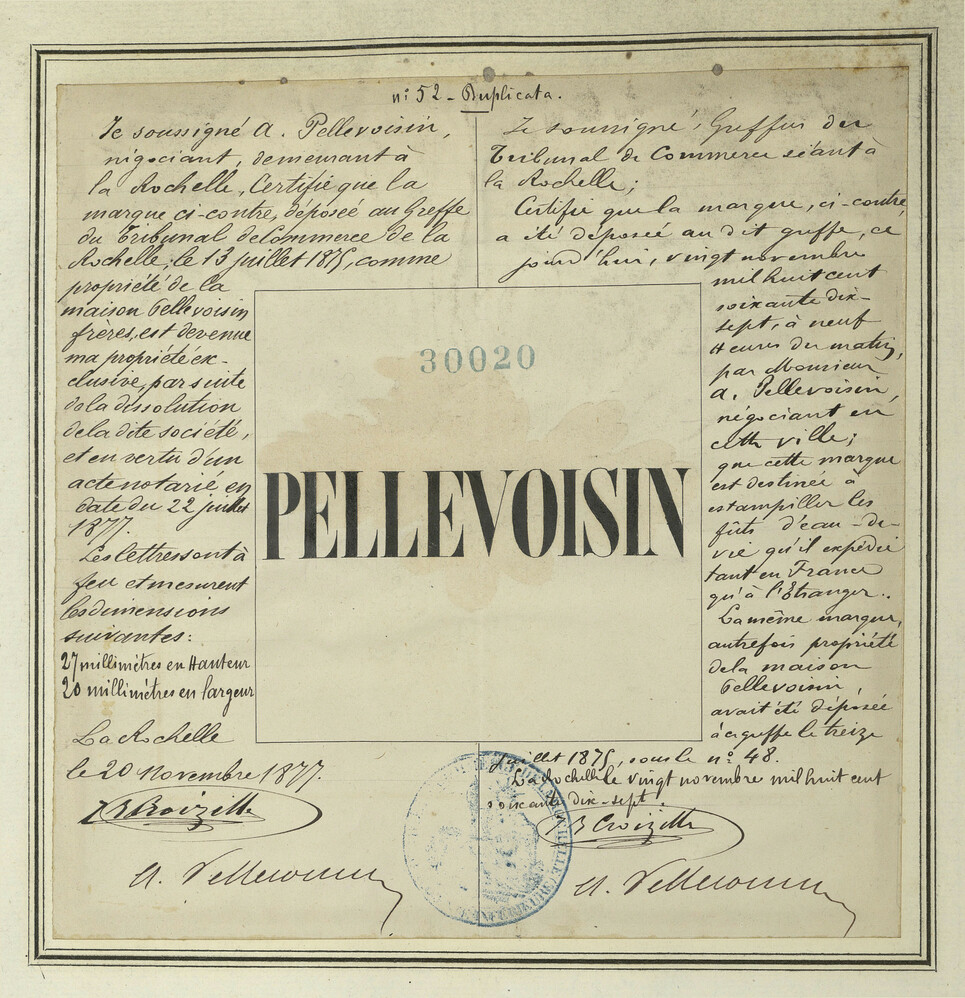 n° 52 - Duplicata.
Je soussigné A. Pellevoisin,
négociant, demeurant à
la Rochelle, Certifie que la
marque ci-contre, déposée au Greffe
du Tribunal de Commerce de la
Rochelle, le 13 juillet 1875, comme
propriété de la
maison Pellevoisin
frères, est devenue
ma propriété ex-
clusive, par suite
de la dissolution
de la dite société,
et en vertu d'un
acte notarié en
date du 22 juillet
1877.
Les lettres sont à
feu et mesurent
les dimensions
suivantes:
27 millimètres en Hauteur
20 millimètres en largeur
La Rochelle
le 20 Novembre 1877.
JB Croizille
A. Pellevoisin
30020
PELLEVOISIN
Je soussigné, Greffier du
Tribunal de Commerce séant à
la Rochelle;
Certifie que la marque, ci-contre,
a été déposée au dit greffe, ce
jourd'hui, vingt novembre
mil huit cent
soixante dix-
sept, à neuf
Heures du matin,
par Monsieur
A. Pellevoisin,
négociant en
cette ville;
que cette marque
est destinée à
estampiller les
fûts d'eau-de-
vie qu'il expédie
tant en France
qu'à l'Etranger.
La même marque,
autrefois propriété
de la maison
Pellevoisin,
avait été déposée
à ce greffe le treize
juillet 1875, sous le n° 48.
La Rochelle le vingt novembre mil huit cent
soixante dix-sept.
JB Croizille
A. Pellevoisin